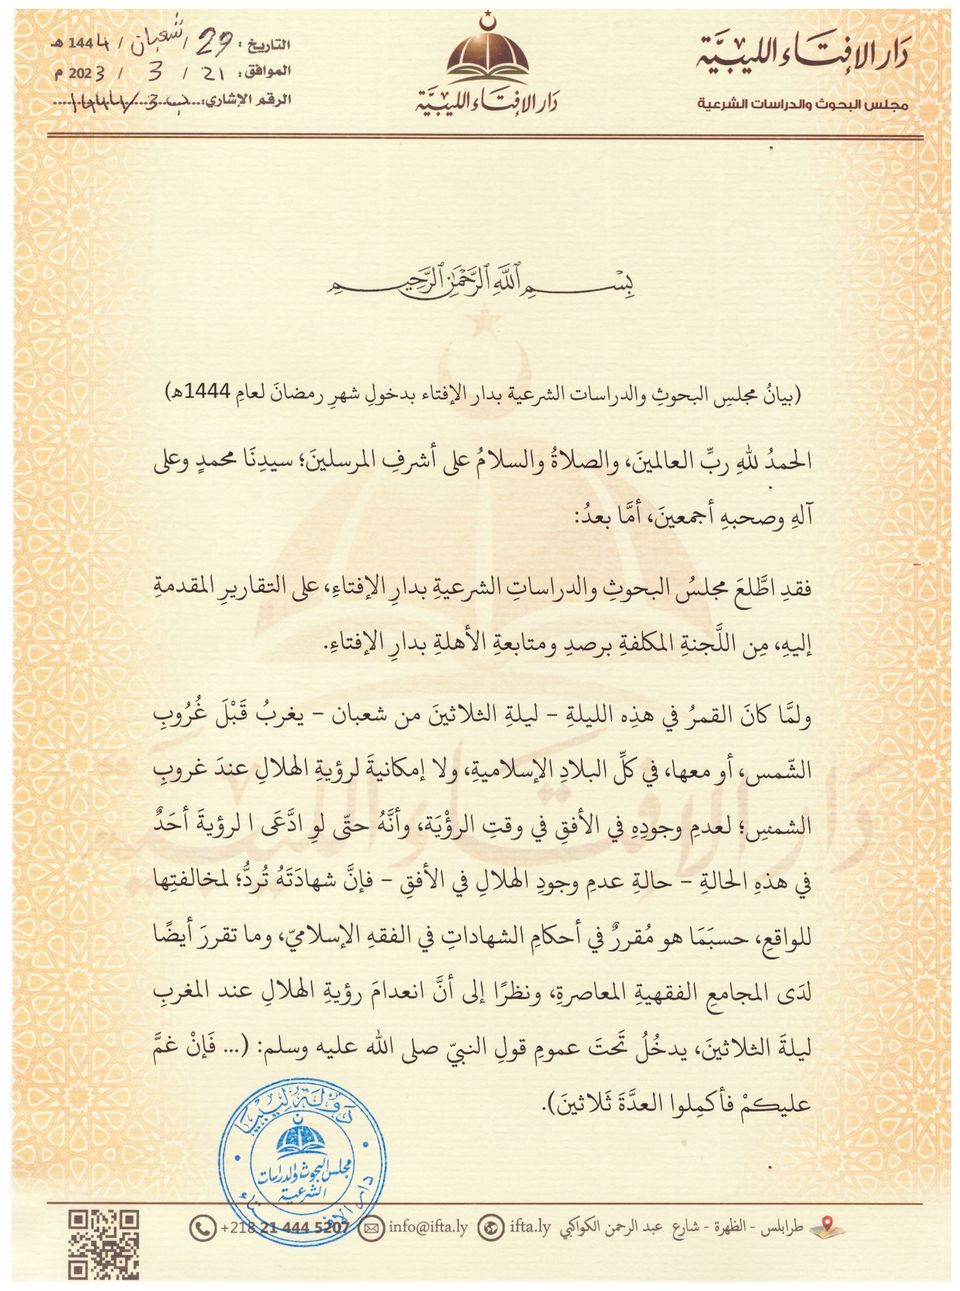 دَار الإفتَاء الليبيَّة
مجلس البحوث والدراسات الشرعية
دَار الإفتَاء الليبيَّة
التاريخ: 29 / شعبان / 1444 هـ
الموافق: 21 / 3 / 2023 م
الرقم الإشاري:
بِسْمِ ٱللَّهِ ٱلرَّحْمَٰنِ ٱلرَّحِيمِ
(بيانُ مجلسِ البحوثِ والدراسات الشرعية بدار الإفتاء بدخولِ شهرِ رمضانَ لعامِ 1444هـ)
الحمدُ للهِ ربِّ العالمينَ، والصلاةُ والسلامُ على أشرفِ المرسلينَ؛ سيدِنَا محمدٍ وعلى
آلهِ وصحبهِ أجمعينَ، أمَّا بعدُ:
فقدِ اطَّلعَ مجلسُ البحوثِ والدراساتِ الشرعيةِ بدارِ الإفتاءِ، على التقاريرِ المقدمةِ
إليهِ، مِن اللَّجنةِ المكلفةِ برصدِ ومتابعةِ الأهلةِ بدارِ الإفتاءِ.
ولمَّا كانَ القمرُ في هذِه الليلةِ – ليلةِ الثلاثينَ من شعبان – يغربُ قَبْلَ غُرُوبِ
الشّمس، أو معها، في كلِّ البلادِ الإسلاميةِ، ولا إمكانيةَ لرؤيةِ الهلالِ عندَ غروبِ
الشمسِ؛ لعدمِ وجودِهِ في الأفقِ في وقتِ الرؤْيَة، وأنَّهُ حتّى لوِ ادَّعَى ا لرؤيةَ أحَدٌ
في هذهِ الحالةِ – حالةِ عدمِ وجودِ الهلالِ في الأفقِ – فإنَّ شهادَتَهُ تُردُّ؛ لمخالفتِها
للواقعِ، حسبَمَا هو مُقررٌ في أحكامِ الشهاداتِ في الفقهِ الإسلاميّ، وما تقررَ أيضًا
لدَى المجامعِ الفقهيةِ المعاصرةِ، ونظرًا إلى أنَّ انعدامَ رؤيةِ الهلالِ عند المغربِ
ليلةَ الثلاثينَ، يدخُلُ تحتَ عمومِ قولِ النبيّ صلى الله عليه وسلم: (... فَإنْ غمَّ
عليكمْ فأكمِلوا العدَّةَ ثَلاثينَ).
دولة ليبيا
مجلس البحوث والدراسات
الشرعية
دار الإفتاء
طرابلس - الظهرة - شارع عبد الرحمن الكواكبي ifta.ly info@ifta.ly +218 21 444 5207